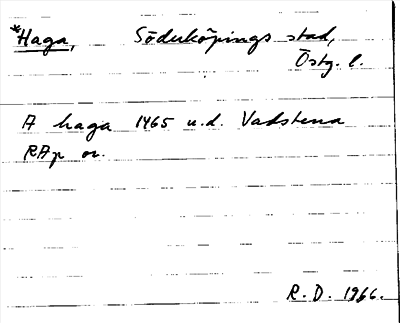 *Haga, Söderköpings stad,
Östg. l.
A haga 1465 u.d. Vadstena
RAp or.
R.D. 1966.